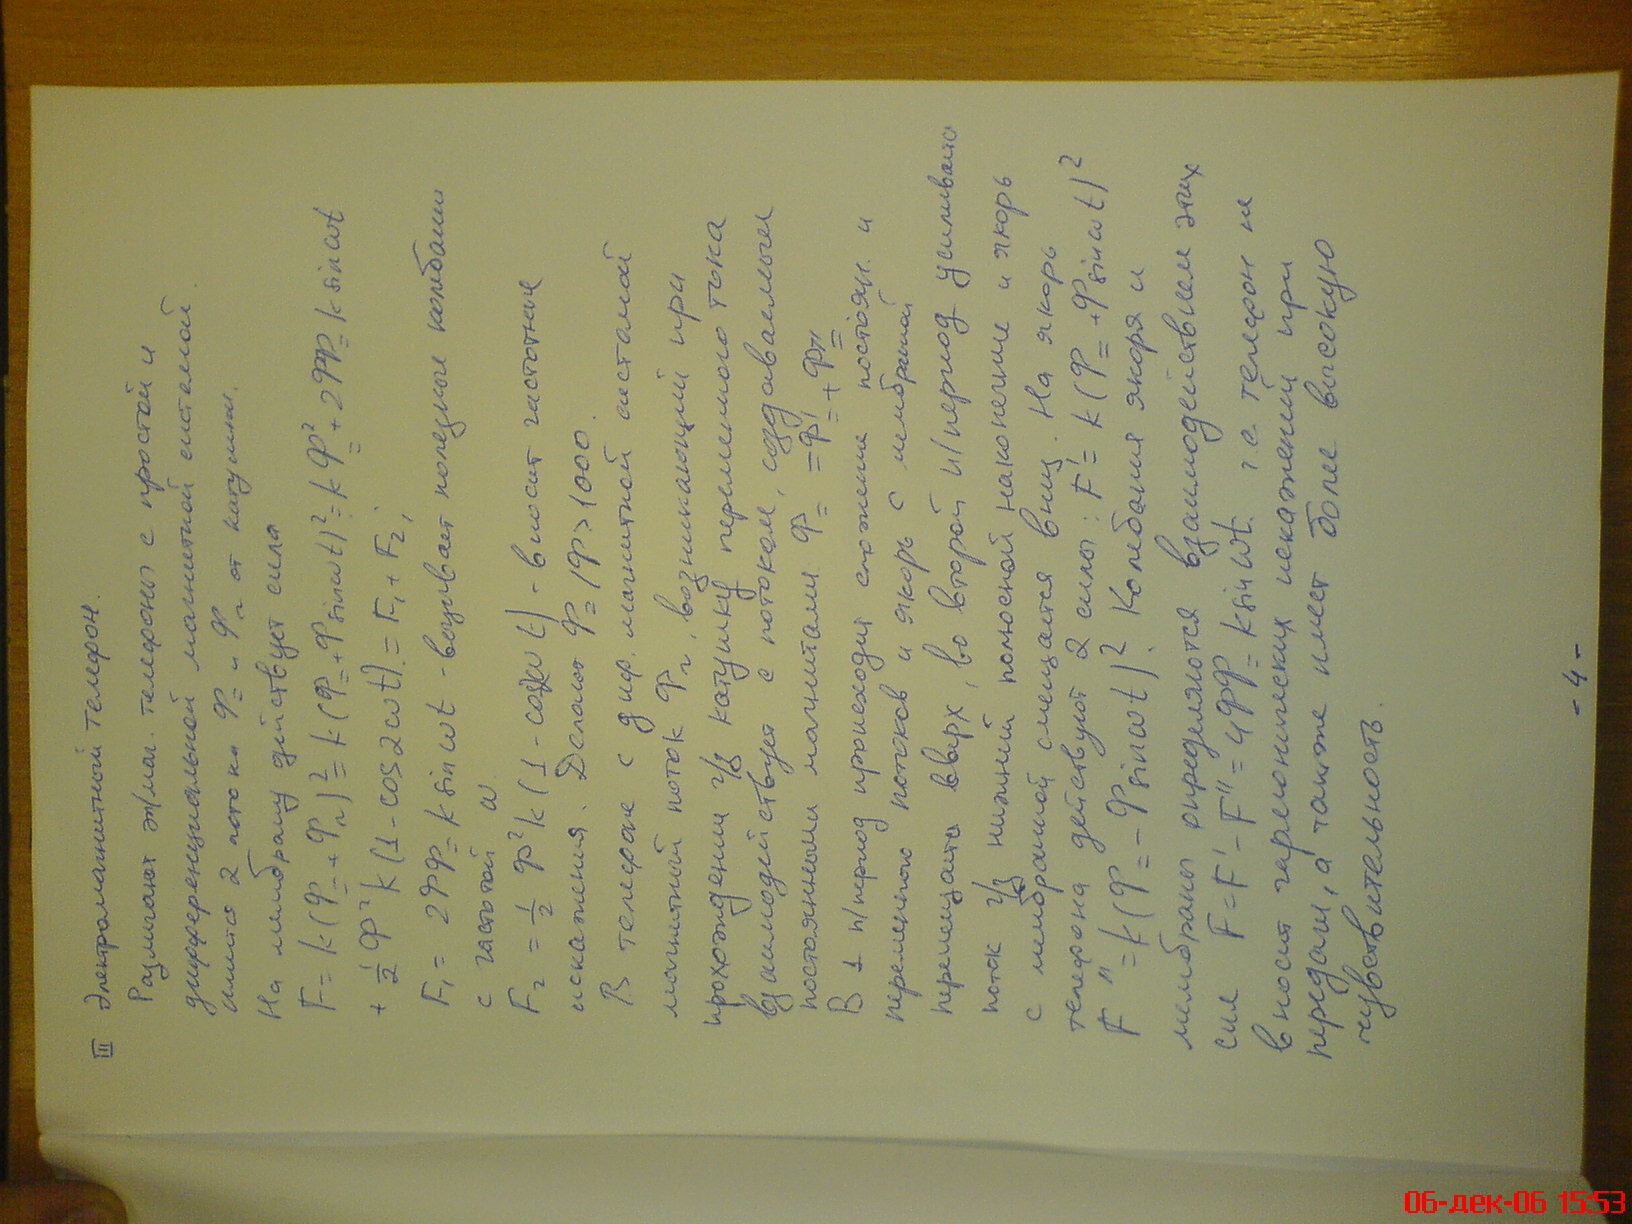 III Электромагнитный телефон.
Различают эл/маг. телефоны с простой и
дифференциальной магнитной системой.
имится 2 потока Ф= и Ф~ от катушки.
На мембрану действует сила
F = k(Ф= + Ф~)² = k(Ф= + Ф sinωt)² = kФ=² + 2ФФ= k sinωt
+ ½Ф² k(1 - cos2ωt) = F₁ + F₂;
F₁ = 2ФФ= k sinωt - вызывает полезные колебания
с частотой ω
F₂ = ½ Ф² k (1 - cos2ωt) - вносит частотные
искажения. Делают Ф= / Ф > 1000.
В телефоне с диф. магнитной системой
магнитный поток Ф~, возникающий при
прохождении ч/з катушку переменного тока
взаимодействует с потоком, создаваемым
постоянными магнитами Ф= = Ф'= + Ф"=
В 1 п/период происходит сложение постоян. и
переменного потоков и якорь с мембраной
перемещается вверх, во второй п/период усиливается
поток ч/з нижний полюсной наконечник и якорь
с мембраной смещается вниз. На якорь
телефона действуют 2 силы: F' = k(Ф= + Ф sinωt)²
F" = k(Ф= - Ф sinωt)². Колбания якоря и
мембраны определяются взаимодействием этих
сил F = F' - F" = 4ФФ= k sinωt. т.е. телефон не
вносит гармонических искажений при
передачи, а также имеет более высокую
чувствительность.
- 4 -
06-дек-06 15:53